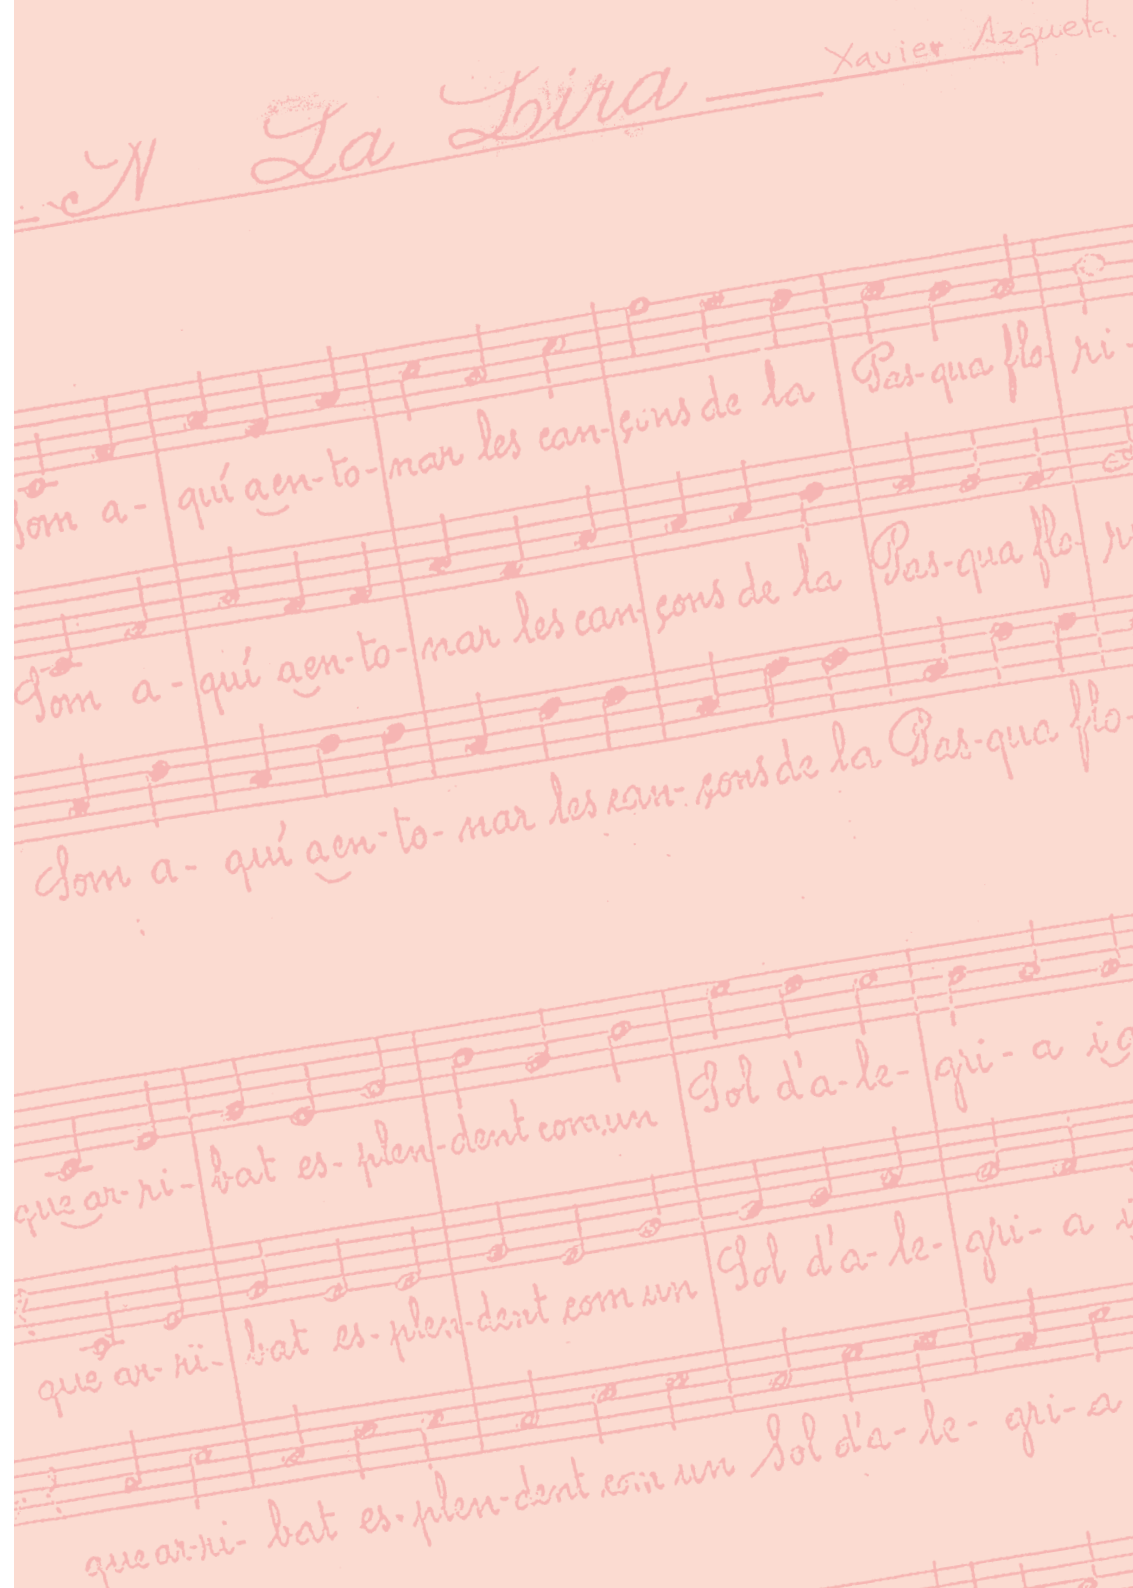 Xavier Azqueta
N La Lira
Som a- quí aen-to- nar les can-çons de la Pas-qua flo- ri-
Som a- quí aen-to- nar les can-çons de la Pas-qua flo- ri
Som a- quí aen-to- nar les can-çons de la Pas-qua flo-
que ar-ri- bat es-plen-dent com un Sol d'a-le- gri-a i
que ar-ri- bat es-plen-dent com un Sol d'a-le- gri-a i
que ar-ri- bat es-plen-dent com un Sol d'a-le- gri-a